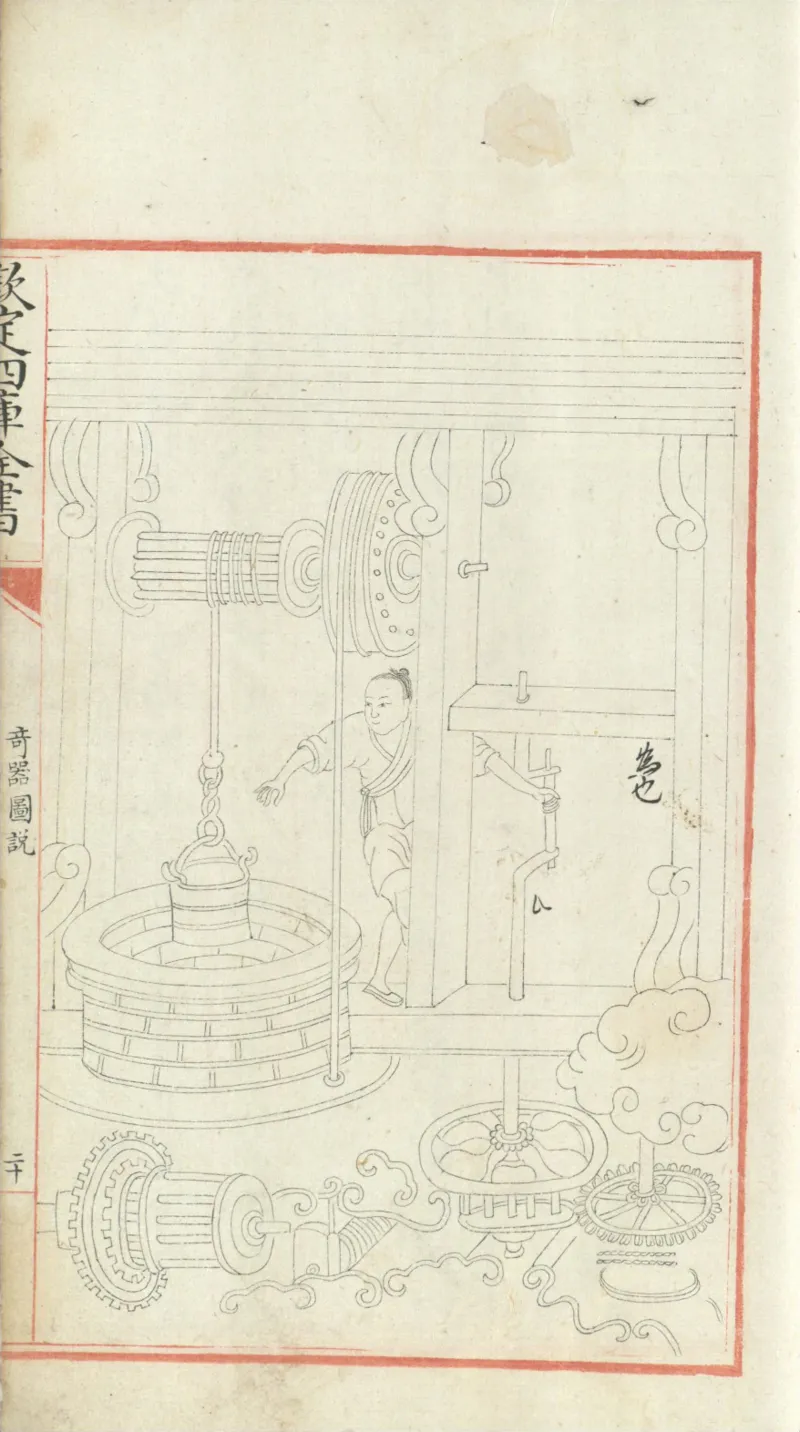 欽定四庫全書
奇器圖說
二十